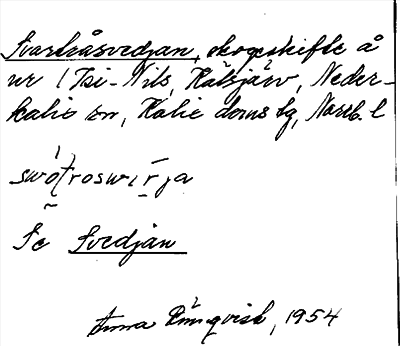 Svartråsvedjan, skogsskifte å
nr 1 Isi-Nils, Räksjärv, Neder-
kalix sn, Kalix doms lg, Norrb. l
Se Svedjan
Anna Rönnqvist, 1954